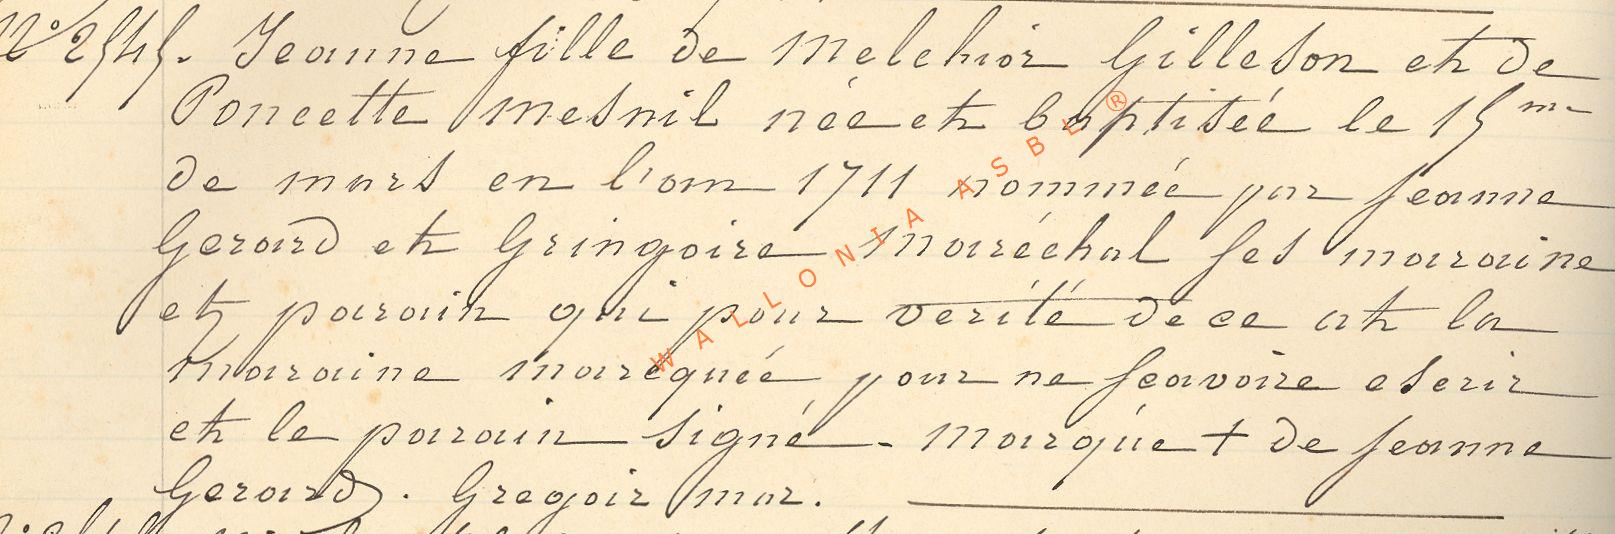 N° 2545. Jeanne fille de Melchior Gilleson et de
Poncette Mesnil née et baptisée le 15 me
de mars en l'an 1711 nommée par Jeanne
Gerard et Gringoire Maréchal ses maraine
et parain qui pour verité de ce at la
maraine marequéé pour ne scavoire escrir
et le parain signé - Marquè + de Jeanne
Gerard. Gregoir mar.
WALLONIA ASBL ®